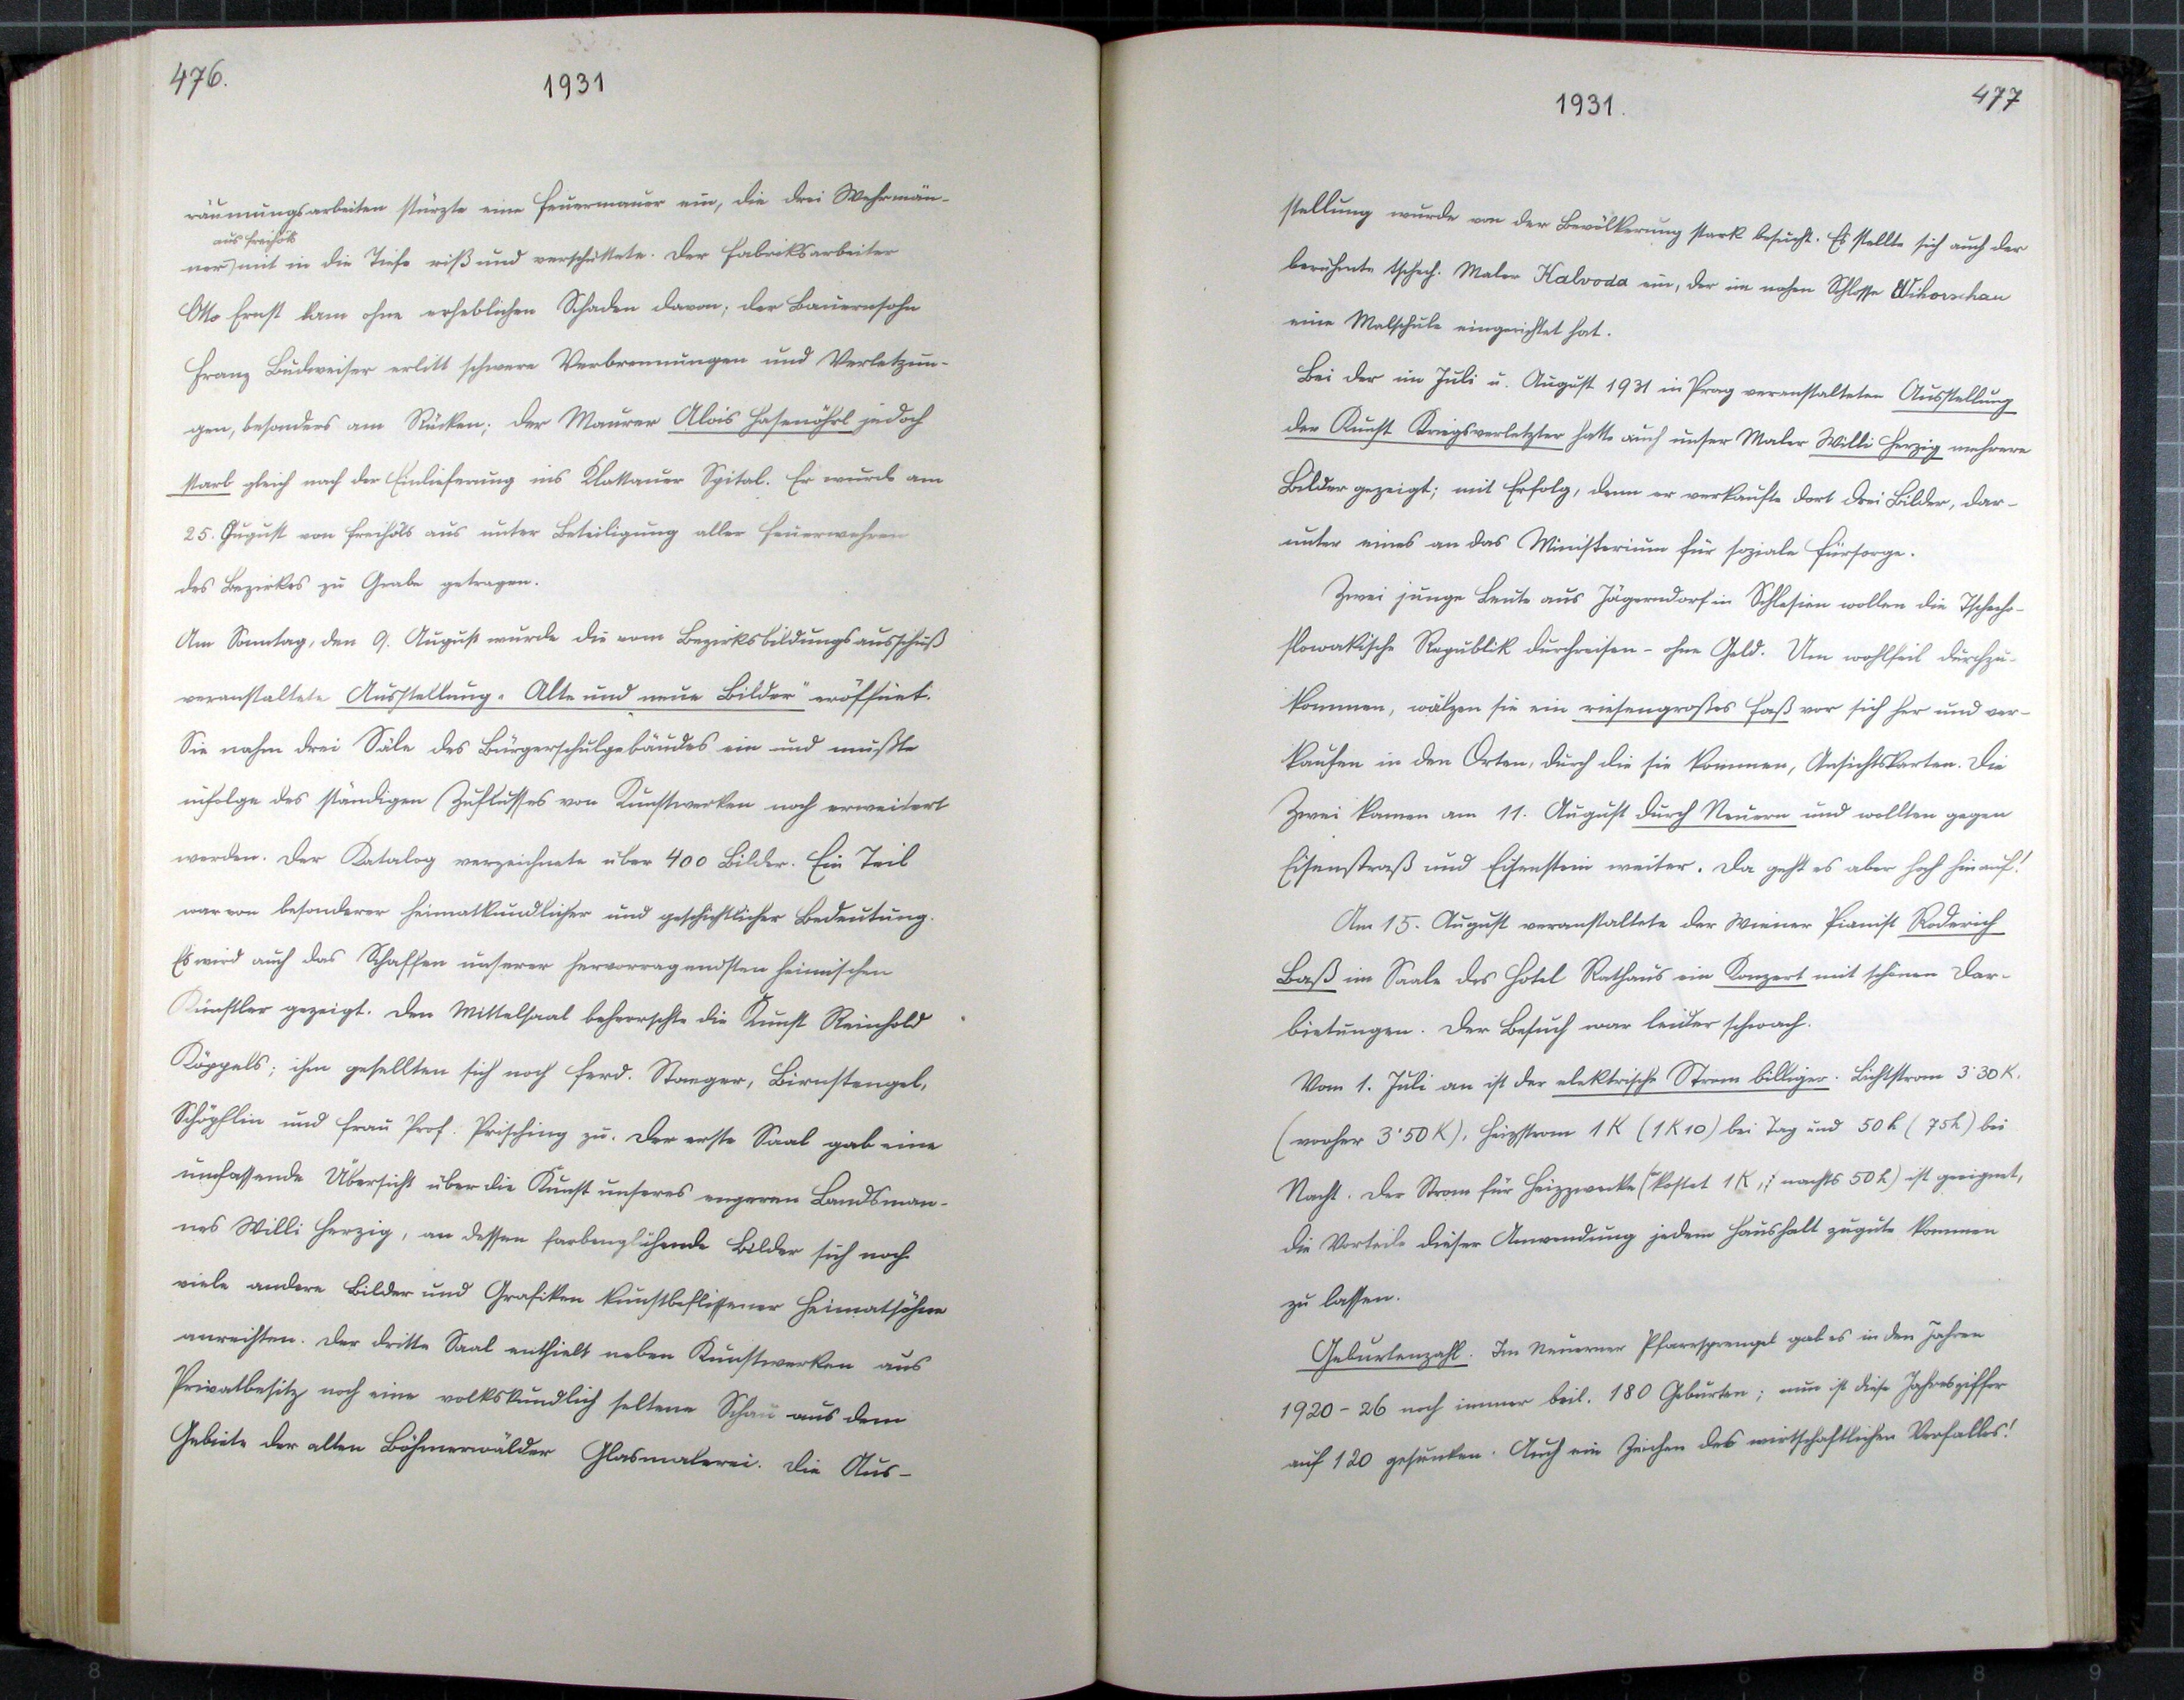 476.
1931
räumungsarbeiten stürzte eine Feuermauer ein, die drei Wehrmän-
aus Freihöls
ner mit in die Tiefe riß und verschüttete. Der Fabriksarbeiter
Otto Ernst kam ohne erheblichen Schaden davon; der Bauernsohn
Franz Budweiser erlitt schwere Verbrennungen und Verletzun-
gen, besonders am Rücken; der Maurer Alois Hasenöhrl jedoch
starb gleich nach der Einlieferung ins Klattauer Spital. Er wurde am
25. August von Freihöls aus unter Beteiligung aller Feuerwehren
des Bezirkes zu Grabe getragen.
Am Sonntag, den 9. August wurde die vom Bezirksbildungsausschuß
veranstaltete Ausstellung „Alte und neue Bilder" eröffnet.
Sie nahm drei Säle des Bürgerschulgebäudes ein und mußte
infolge des ständigen Zuflusses von Kunstwerken noch erweitert
werden. Der Katalog verzeichnete über 400 Bilder. Ein Teil
war von besonderer heimatkundlicher und geschichtlicher Bedeutung.
Es wird auch das Schaffen unserer hervorragendsten heimischen
Künstler gezeigt. Den Mittelsaal beherrschte die Kunst Reinhold
Köppels; ihm gesellten sich noch Ferd. Staeger, Birnstengel,
Schöpflin und Frau Prof. Prisching zu. Der erste Saal gab eine
umfassende Übersicht über die Kunst unseres engeren Landsman-
nes Willi Herzig, an dessen farbenglühende Bilder sich noch
viele andere Bilder und Grafiken kunstbeflissener Heimatsöhne
anreihten. Der dritte Saal enthielt neben Kunstwerken aus
Privatbesitz noch eine volkskundlich seltene Schau aus dem
Gebiete der alten Böhmerwälder Glasmalerei. Die Aus-
1931.
477
stellung wurde von der Bevölkerung stark besucht. Es stellte sich auch der
berühmte tschech. Maler Kalvoda ein, der im nahen Schlosse Wihorschan
eine Malschule eingerichtet hat.
Bei der im Juli u. August 1931 in Prag veranstalteten Ausstellung
der Kunst Kriegsverletzter hatte auch unser Maler Willi Herzig mehrere
Bilder gezeigt; mit Erfolg, denn er verkaufte dort drei Bilder, dar-
unter eines an das Ministerium für soziale Fürsorge.
Zwei junge Leute aus Jägerndorf in Schlesien wollen die Tschecho-
slowakische Republik durchreisen - ohne Geld. Um wohlfeil durchzu-
kommen, wälzen sie ein riesengroßes Faß vor sich her und ver-
kaufen in den Orten, durch die sie kommen, Ansichtskarten. Die
Zwei kamen am 11. August durch Neuern und wollten gegen
Eisenstraß und Eisenstein weiter. Da geht es aber hoch hinauf!
Am 15. August veranstaltete der Wiener Pianist Roderich
Baß im Saale des Hotel Rathaus ein Konzert mit schönen Dar-
bietungen. Der Besuch war leider schwach.
Vom 1. Juli an ist der elektrische Strom billiger. Lichtstrom 3˙30 K.
(vorher 3˙50 K), Heizstrom 1 K (1 K 10) bei Tag und 50 h (75 h) bei
Nacht. Der Strom für Heizzwecke (kostet 1 K, nachts 50 h) ist geeignet,
die Vorteile dieser Anwendung jedem Haushalt zugute kommen
zu lassen.
Geburtenzahl. Im Neuerner Pfarrsprengel gab es in den Jahren
1920 - 26 noch immer beil. 180 Geburten; nun ist diese Jahresziffer
auf 120 gesunken. Auch ein Zeichen des wirtschaftlichen Verfalles!